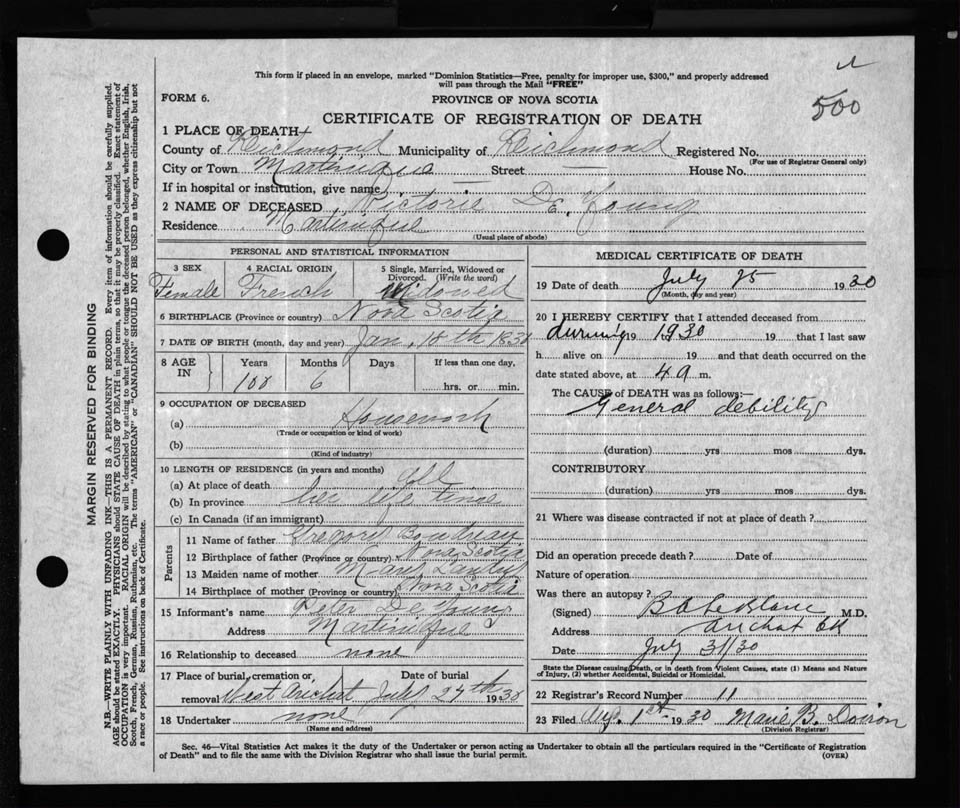 This form if placed in an envelope, marked "Dominion Statistics—Free, penalty for improper use, $300," and properly addressed
will pass through the Mail "FREE"
500
FORM 6.
PROVINCE OF NOVA SCOTIA
CERTIFICATE OF REGISTRATION OF DEATH
1 PLACE OF DEATH
County of Richmond Municipality of Richmond Registered No.
(For use of Registrar General only)
City or Town Martinique Street — House No.
If in hospital or institution, give name —
2 NAME OF DECEASED Victorie De Young
Residence Martinique
(Usual place of abode)
PERSONAL AND STATISTICAL INFORMATION
3 SEX 4 RACIAL ORIGIN 5 Single, Married, Widowed or
Divorced. (Write the word)
Female French Widowed
6 BIRTHPLACE (Province or country) Nova Scotia
7 DATE OF BIRTH (month, day and year) Jan. 18th 1830
8 AGE IN Years Months Days If less than one day,
100 6 hrs. or min.
9 OCCUPATION OF DECEASED
(a) Housework
(Trade or occupation or kind of work)
(b)
(Kind of industry)
10 LENGTH OF RESIDENCE (in years and months)
(a) At place of death all
(b) In province her life time
(c) In Canada (if an immigrant)
Parents
11 Name of father Gregory Boudreau
12 Birthplace of father (Province or country) Nova Scotia
13 Maiden name of mother Mary
14 Birthplace of mother (Province or country) Nova Scotia
15 Informant's name Peter De Young
Address Martinique
16 Relationship to deceased none
17 Place of burial, cremation or, Date of burial
removal West Arichat July 27th 1930
18 Undertaker none
(Name and address)
MEDICAL CERTIFICATE OF DEATH
19 Date of death July 25 1930
(Month, day and year)
20 I HEREBY CERTIFY that I attended deceased from
during 19 1930 19 that I last saw
h alive on 19 and that death occurred on the
date stated above, at 4 a m.
The CAUSE OF DEATH was as follows:—
General debility
(duration) yrs mos dys.
CONTRIBUTORY
(duration) yrs mos dys.
21 Where was disease contracted if not at place of death?
Did an operation precede death? Date of
Nature of operation
Was there an autopsy?
(Signed) B A LeBlanc M.D.
Address Arichat CB
Date July 31/30
State the Disease causing Death, or in death from Violent Causes, state (1) Means and Nature
of Injury, (2) whether Accidental, Suicidal or Homicidal.
22 Registrar's Record Number 11
23 Filed Aug. 1st 1930 Marie B. Doiron
(Division Registrar)
Sec. 46—Vital Statistics Act makes it the duty of the Undertaker or person acting as Undertaker to obtain all the particulars required in the "Certificate of Registration
of Death" and to file the same with the Division Registrar who shall issue the burial permit.
(OVER)
MARGIN RESERVED FOR BINDING
N.B.—WRITE PLAINLY WITH UNFADING INK—THIS IS A PERMANENT RECORD. Every item of information should be carefully supplied.
AGE should be stated EXACTLY. PHYSICIANS should STATE CAUSE OF DEATH in plain terms, so that it may be properly classified. Exact statement of
OCCUPATION is very important. RACIAL ORIGIN will be described by stating to what people or tongue the deceased person belonged, whether English, Irish,
Scotch, French, German, Russian, Ruthenian, etc. The terms "AMERICAN" or "CANADIAN" SHOULD NOT BE USED as they express citizenship but not
a race or people. See instructions on back of Certificate.